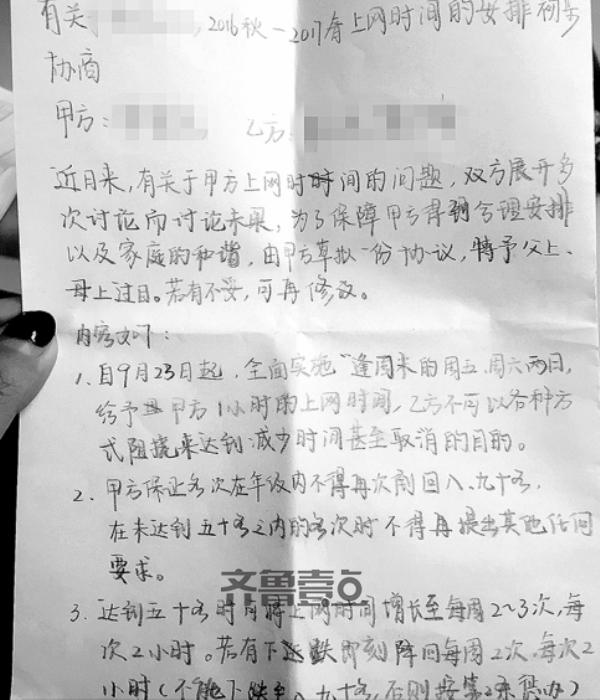 有关 2016秋—2017春上网时间的安排初步
协商
甲方： 乙方：
近日来，有关于甲方上网时时间的问题，双方展开多
次讨论而讨论未果，为了保障甲方得到合理安排
以及家庭的和谐，由甲方草拟一份协议，特予父上、
母上过目。若有不妥，可再修改。
内容如下：
1、自9月23日起，全面实施“逢周末的周五、周六两日，
给予甲方1小时的上网时间，乙方不可以各种方
式阻挠来达到减少时间甚至取消的目的。
2、甲方保证名次在年级内不得再次削回八、九十名，
在未达到五十名之内的名次时不得再提出其他任何
要求。
齐鲁壹点
3、达到五十名时将上网时间增长至每周2~3次，每
次2小时。若有下跌即刻降回每周2次，每次2
小时（不能下跌至八、九十名，否则按第2条惩办）